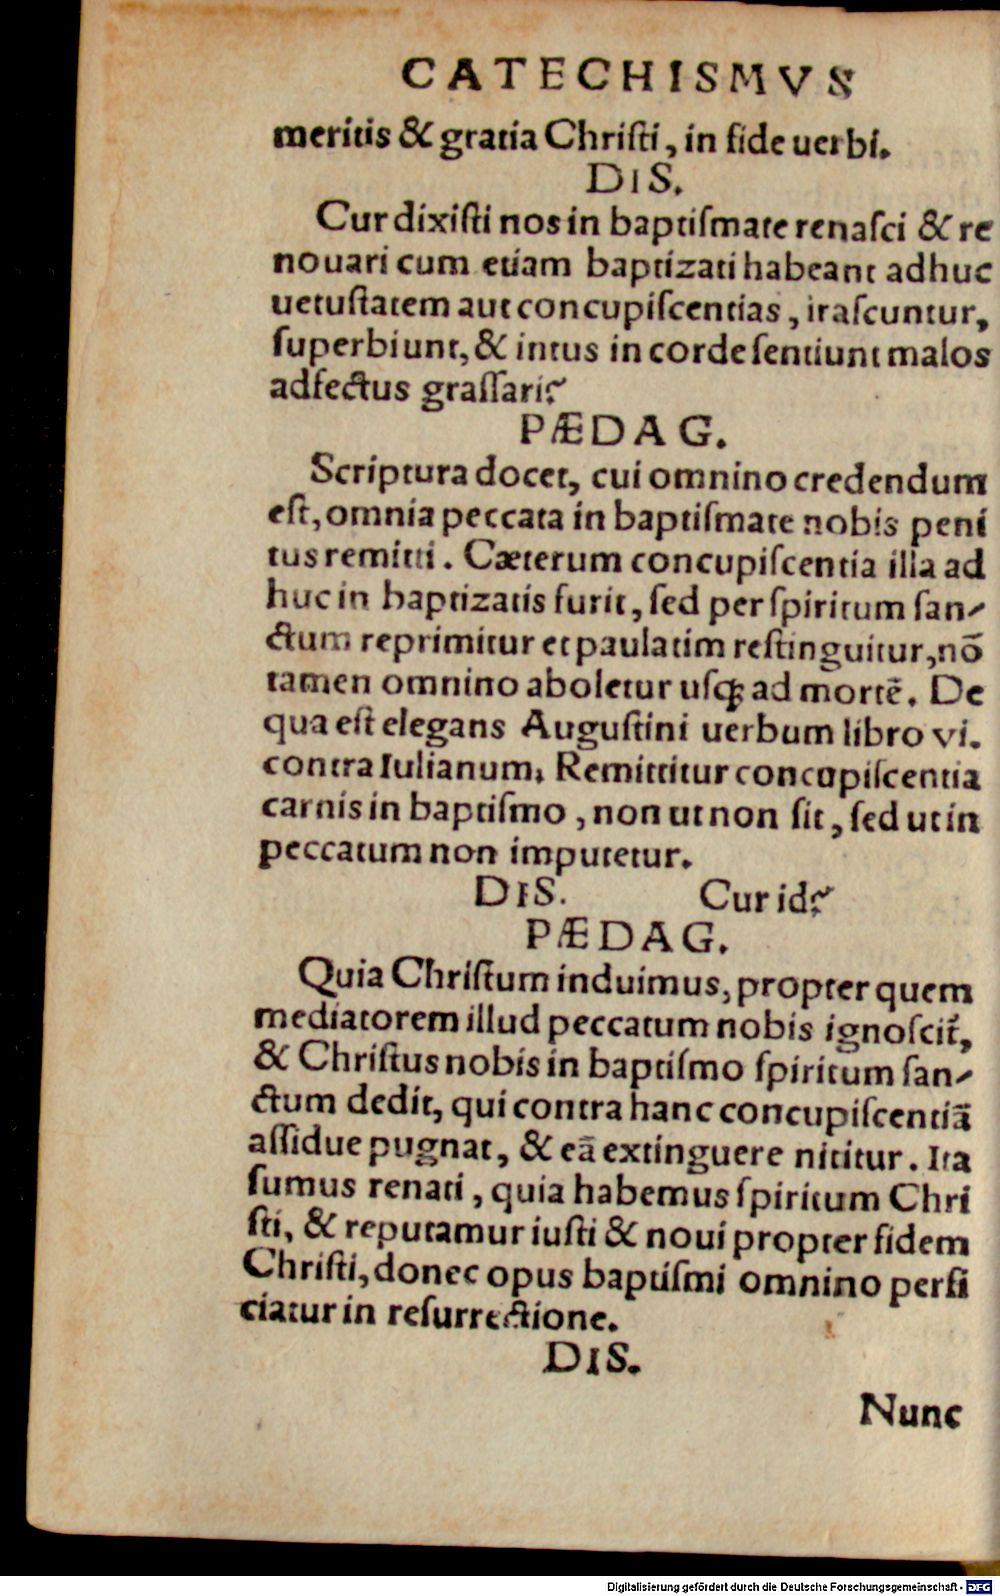 CATECHISMVS
meritis & gratia Christi, in fide uerbi.
DIS.
Cur dixisti nos in baptiſmate renaſci & re
nouari cum etiam baptizati habeant adhuc
uetuſtatem aut concupiſcentias, iraſcuntur,
ſuperbiunt, & intus in corde ſentiunt malos
adfectus graſſari?
PÆDAG.
Scriptura docet, cui omnino credendum
eſt, omnia peccata in baptiſmate nobis peni
tus remitti. Cæterum concupiſcentia illa ad
huc in baptizatis furit, ſed per ſpiritum ſan-
ctum reprimitur et paulatim reſtinguitur, nō
tamen omnino aboletur uſq; ad mortē. De
qua eſt elegans Auguſtini uerbum libro vi.
contra Iulianum. Remittitur concupiſcentia
carnis in baptiſmo, non ut non ſit, ſed ut in
peccatum non imputetur.
DIS. Cur id?
PÆDAG.
Quia Chriſtum induimus, propter quem
mediatorem illud peccatum nobis ignoſcit̃,
& Chriſtus nobis in baptiſmo ſpiritum ſan-
ctum dedit, qui contra hanc concupiſcentiā
aſſidue pugnat, & eā extinguere nititur. Ita
ſumus renati, quia habemus ſpiritum Chri
ſti, & reputamur iuſti & noui propter fidem
Chriſti, donec opus baptiſmi omnino perfi
ciatur in reſurrectione.
DIS.
Nunc
Digitalisierung gefördert durch die Deutsche Forschungsgemeinschaft - DFG